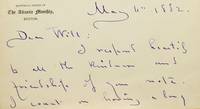 EDITORIAL OFFICE OF
The Atlantic Monthly,
BOSTON.
May 4th 1882.
Dear Will:
I respond heartily
to all the kindness and
friendship of your note.
I count on having a long